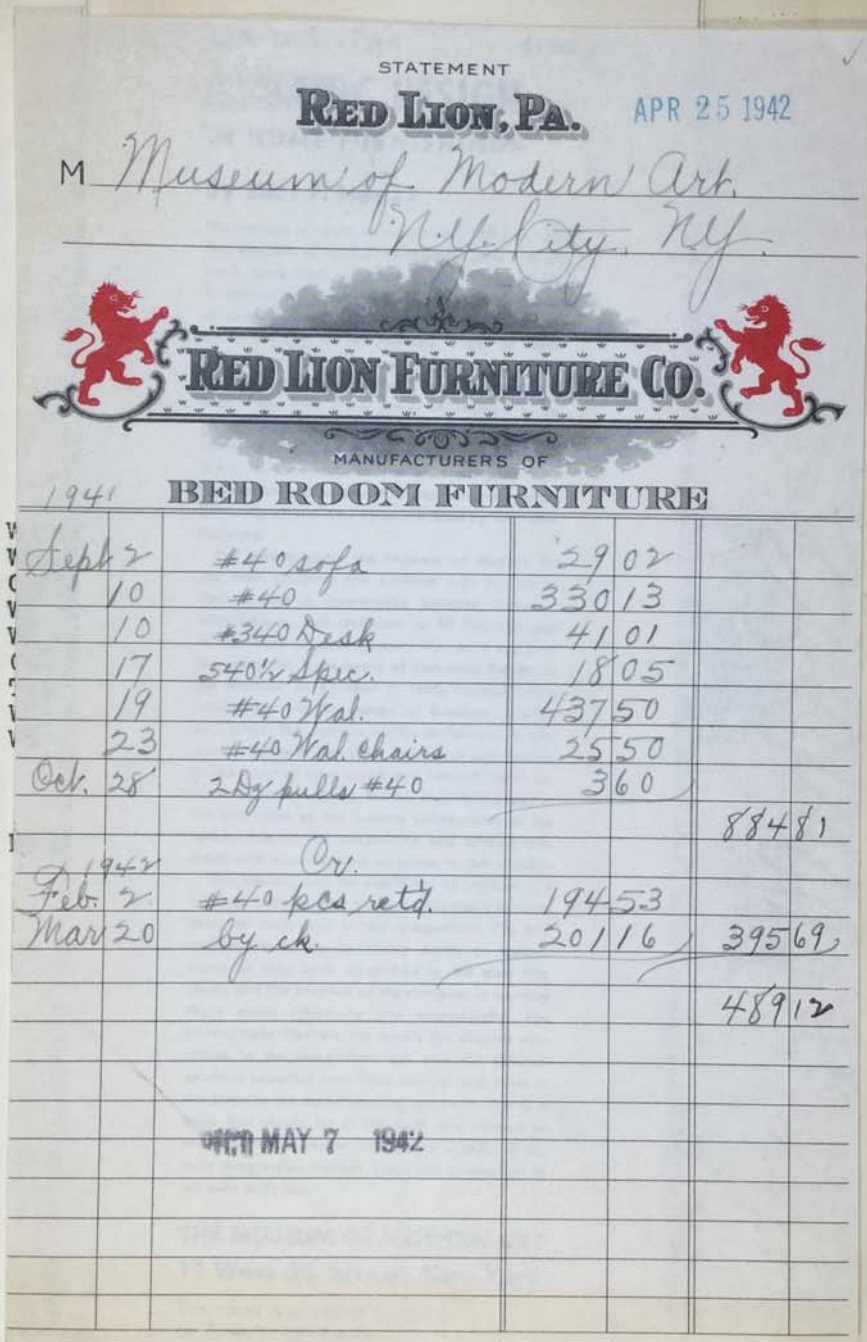 STATEMENT
RED LION, PA.
APR 25 1942
M Museum of Modern Art.
N.Y. City. N.Y.
RED LION FURNITURE CO.
MANUFACTURERS OF
BED ROOM FURNITURE
1941
Sept 2 #40 sofa 29 02
10 #40 330 13
10 #340 Desk 41 01
17 540½ Spec. 18 05
19 #40 Wal. 437 50
23 #40 Wal. chairs 25 50
Oct. 28 2 Dz pulls #40 3 60
884 81
1942 Cr.
Feb. 2 #40 pcs retd. 194 53
Mar 20 by ck. 201 16 395 69
489 12
MAY 7 1942